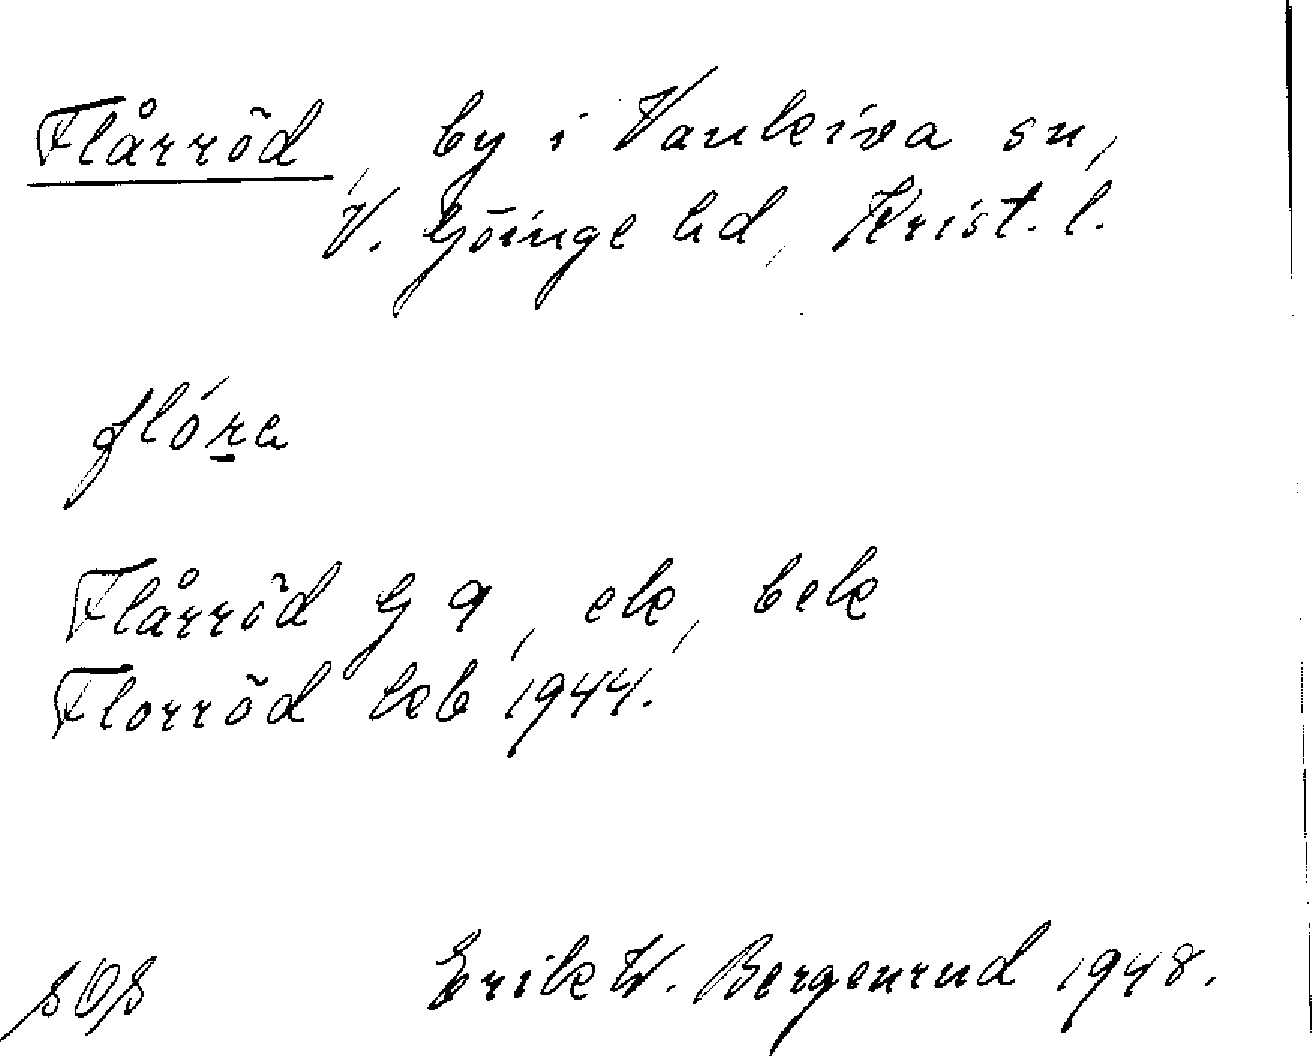 Flårröd, by i Vankiva sn,
V. Göinge hd, Krist. l.
flóra
Flårröd G 9, ek, bek
Florröd hkb 1944.
SOS Erik W. Bergenrud 1948.